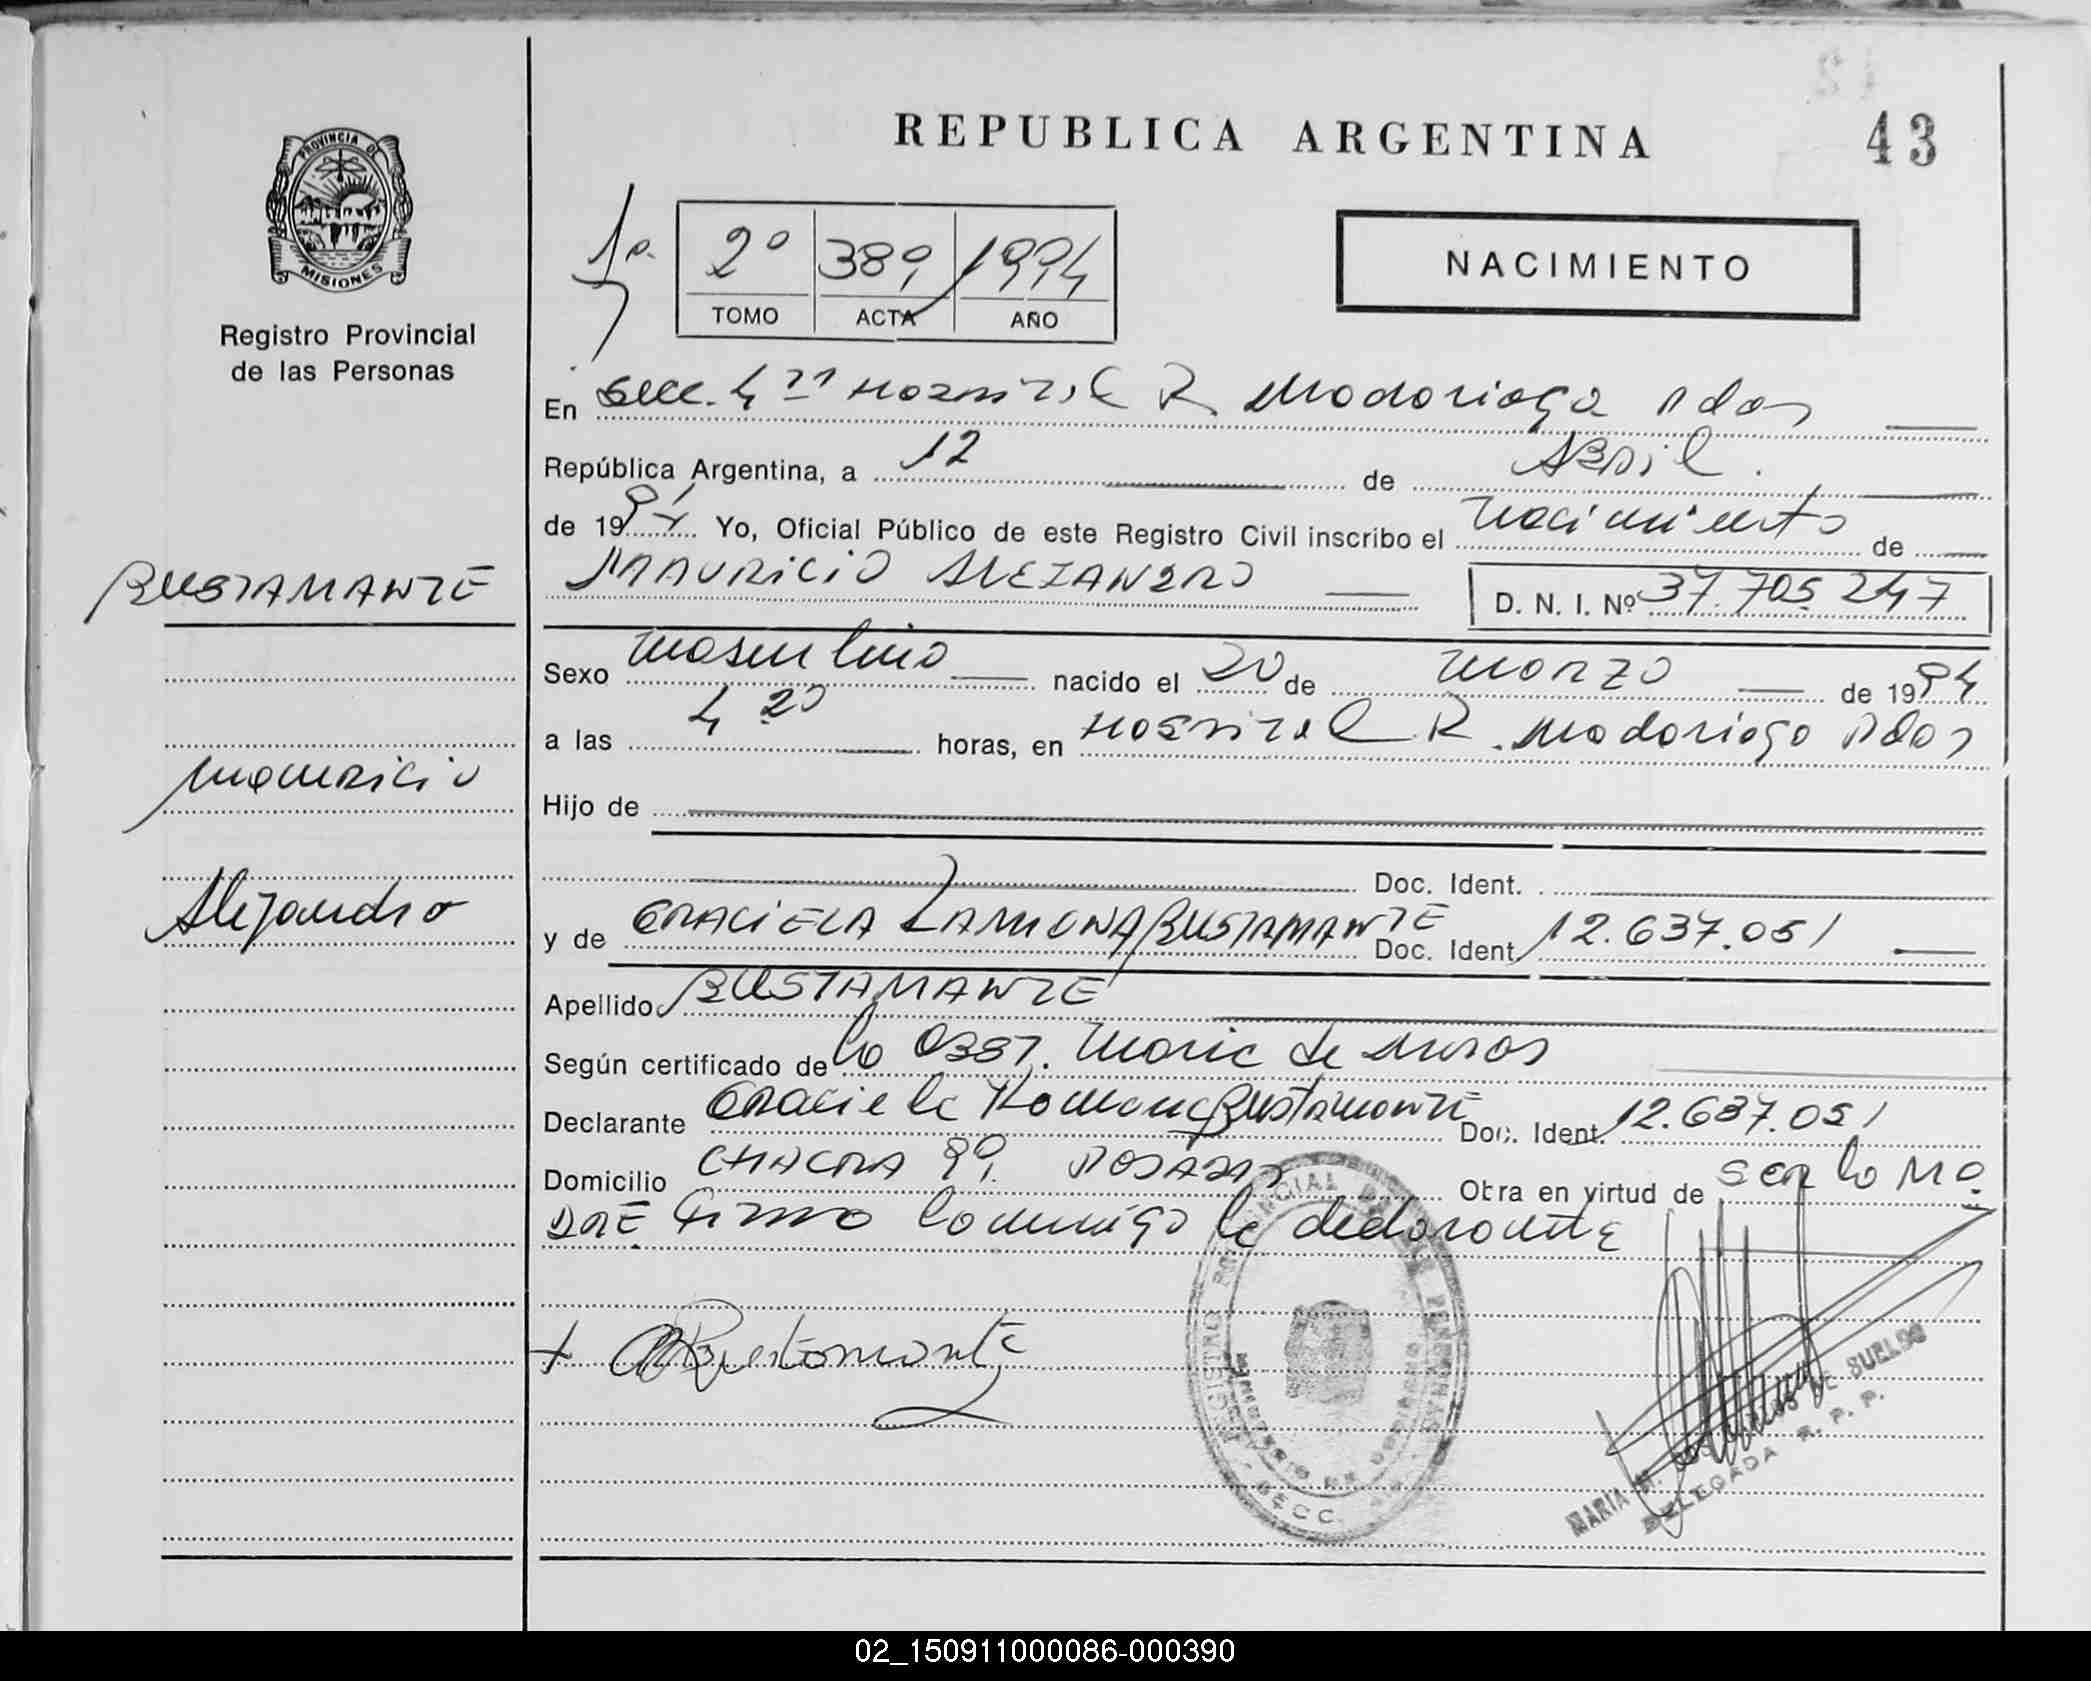 REPUBLICA ARGENTINA
43
PROVINCIA DE
MISIONES
Registro Provincial
de las Personas
2º 389 1994
TOMO ACTA AÑO
NACIMIENTO
En Secc. 4ta Hospital R. Madariaga Pdas
República Argentina, a 12 de Abril
de 1994 Yo, Oficial Público de este Registro Civil inscribo el nacimiento de
BUSTAMANTE
MAURICIO ALEJANDRO
D. N. I. Nº 37.705.247
Sexo masculino nacido el 20 de marzo de 1994
a las 4 20 horas, en Hospital R. Madariaga Pdas
Mauricio
Hijo de
Doc. Ident.
Alejandro
y de GRACIELA RAMONA BUSTAMANTE Doc. Ident. 12.637.051
Apellido BUSTAMANTE
Según certificado de la Obst. Maria de
Declarante Graciela Ramona Bustamante Doc. Ident. 12.637.051
Domicilio CHACRA POSADAS Otra en virtud de ser la MA
DRE Firma conmigo la declarante
Bustamante
REGISTRO PROVINCIAL DE LAS PERSONAS
MINISTERIO DE GOBIERNO
MARIA M. DE SUELDO
DELEGADA R. P. P.
02_150911000086-000390